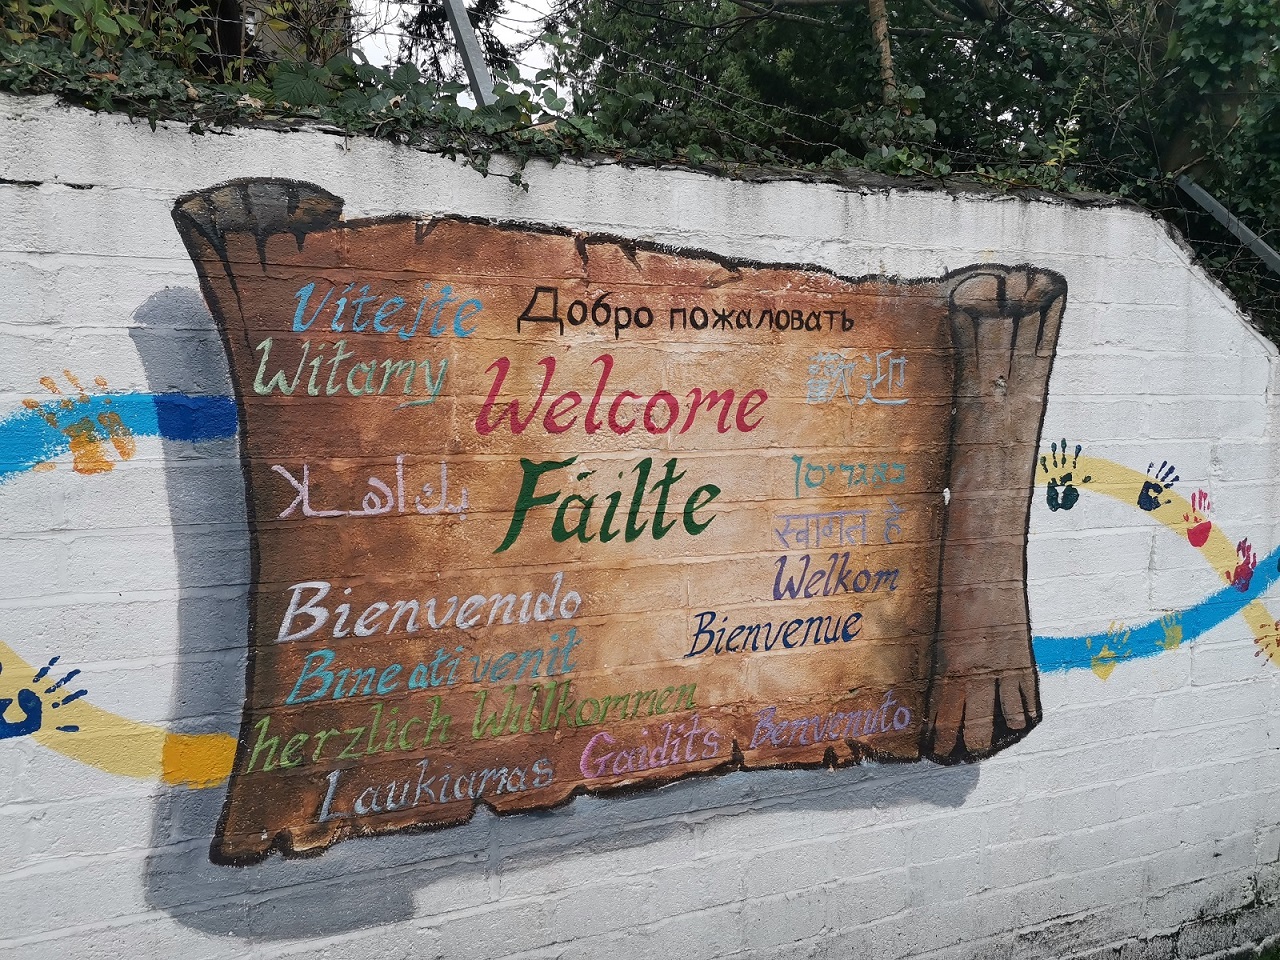 Vítejte
Добро пожаловать
Witamy
Welcome
歡迎
بك أهلا
Fáilte
באגריסן
स्वागत हे
Welkom
Bienvenido
Bienvenue
Bine ati venit
herzlich Willkommen
Laukiamas
Gaidits
Benvenuto